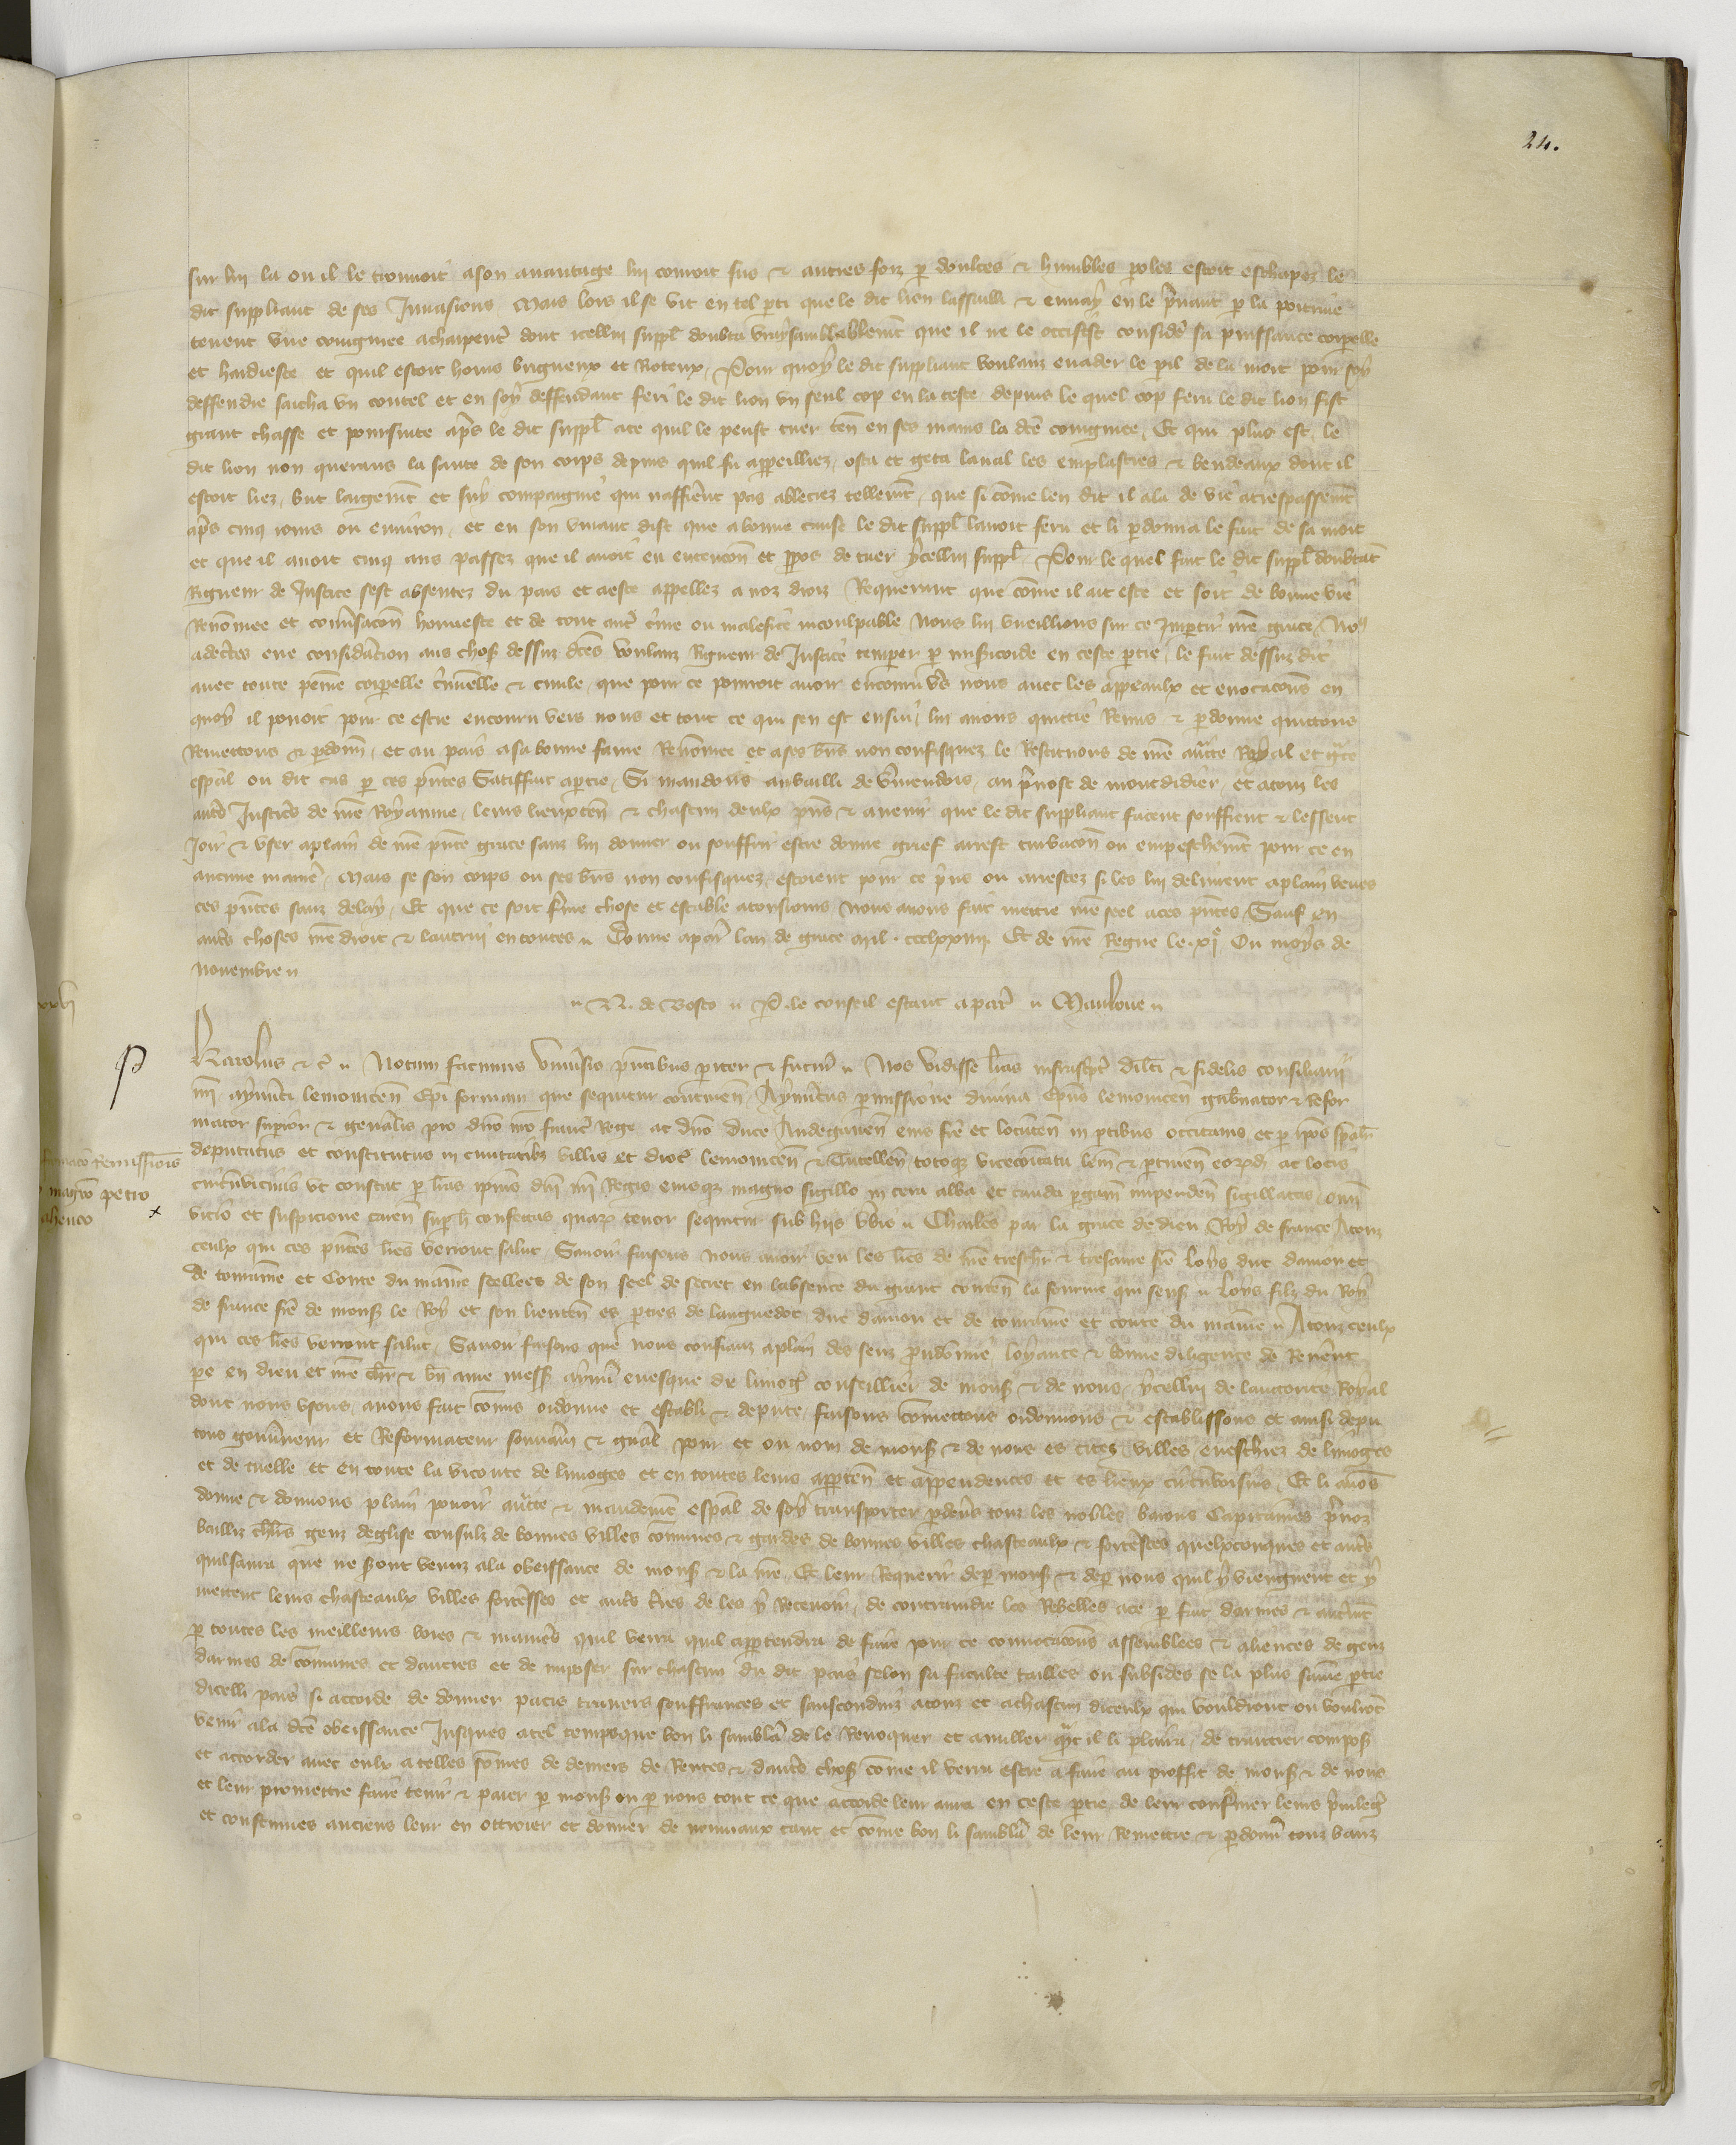 24.
sur lui la ou il le trouvoit a son avantage lui couroit sus & autres foiz p doulces & humbles poles estoit eschapez le
dit suppliant de ses Invasions Mais lors il se vit en tel pti que le dit lion lassailli & envay en le pnant p la poitrine
tenent une coingnee a charpent dont icellui suppl doubta vraysamblablemt que il ne le occisist consider sa puissance corpelle
et hardieste et quil estoit homs brigueux et Roteux Pour quoy le dit suppliant voulanz evader le pil de la mort pour soy
deffendre sacha un coutel et en soy deffendant feri le dit lion un seul cop en la teste depuis le quel cop feru le dit lion fist
grant chasse et poursuite aps le dit suppl ace quil le peust tuer ten en ses mains la dce coingnee Et qui plus est le
dit lion non querans la sante de son corps depuis quil fu appeilliez osta et geta laval les emplastres & bendeaux dont il
estoit liez but largemt et suy compaignie qui naffierent pas a bleciez tellemt que si come len dit il ala de vie a trespassemt
aps cinq iours ou environ et en son vivant dist que a bonne cause le dit suppl lavoit feru et li pdonna le fait de sa mort
et que il avoit cinq ans passez que il avoit eu entencon et ppos de tuer ycellui suppl Pour le quel fait le dit suppl doubtat
Rigueur de Justice sest absentez du pais et a este appellez a noz droiz Requerant que come il ait este et soit de bonne vie
Renomee et conversacon honneste et de tout aut cime ou malefice incoulpable Nous lui vueillions sur ce Impartir nre grace Nous
adectes eue consideracion aus chos dessuz dces voulanz Rigueur de Justice temperer p misericorde en ceste ptie le fait dessuz dit
avec toute peine corpelle ciminelle & civile que pour ce pourroit avoir encouru vs nous avec les appeaulx et evocacons en
quoy il povoit pour ce estre encouru vers nous et tout ce qui sen est ensui lui avons quittie Remis & pdonne quittons
Remettons & pdonn et au pais a sa bonne fame Renomee et a ses bns non confisquez le Restituons de nre aucte Royal et gce
espal ou dit cas p ces pntes Satiffait a ptie Si mandons au bailli de Vmendois au pvost de mondidier et a touz les
auts Justics de nre Royaume leurs lieuxten & chascun deulx pns & avenir que le dit suppliant facent souffrent & lessent
Joir & user a plain de nre pnte grace sanz lui donner ou souffrir estre donne grief arrest turbacon ou empeschemt pour ce en
aucune manie Mais se son corps ou ses bns non confisquez estoient pour ce pns ou arrestez si les lui delivrent a plain veues
ces pntes sanz delay Et que ce soit ferme chose et estable a tousiours nous avons fait mettre nre seel a ces pntes Sauf en
auts choses nre droit & lautrui en toutes Donne a par lan de grace mil ccclxxiiii Et de nre Regne le xi Ou moys de
Novembre
N. de Bosco P le conseil estant a paris Mauloue
Karolus & c Notum facimus universis pntibus pariter & futur Nos vidisse lras infrascpt dilcti & fidelis consiliarii
nri aymerici lemovicen Epi formam que sequitur continen Aymericus pmissione divina Epus lemovicen gubnator & Refor
mator superior & genalis pro dno nro franc Rege ac dno duce Andegaven eius fre et locuten in ptibus occitanis et p ipos spal
deputatus et constitutus in civitatibz villis et dioc lemovicen & Tutellen totoqz vicecomitatu lem & ptinen eord ac locis
circunvicinis ut constat p lras ipius dni nri Regis eiusqz magno sigillo in cera alba et cauda pgam impenden sigillatas omi
vicio et suspicione caren sup h confectas quar tenor sequitur sub hiis vbis Charles par la grace de dieu Roy de france A touz
ceulx qui ces pntes lres verront salut Savoir faisons nous avoir veu les lres de nre treschr & tresame fre Loys duc danjou et
de touraine et Conte du maine seellees de son seel de secret en labsence du grant conten la fourme qui sens Loys filz du Roy
de france fre de mons le Roy et son lieuten es pties de languedoc duc danjou et de touraine et conte du maine A touz ceulx
qui ces lres verront salut Savoir faisons que nous confians a plain des senz preudomie loyaute & bonne diligence de Revent
pe en dieu et nre chr & bn ame mess aymi evesque de limog conseillier de mons & de nous ycellui de lauctorite Royal
dont nous usons avons fait comis ordonne et establi & depute faisons comettons ordonnons & establissons et ainsi depu
tons gouvneur et Reformateur souvain & gnal pour et ou nom de mons & de nous es citez villes eveschiez de limoges
et de tuelle et en toute la viconte de limoges et en toutes leurs apperten et appendences et es lieux circunvoisins Et li avons
donne & donnons plain povoir aucte & mandement espal de soy transporter pdevs touz les nobles barons Capitaines pvoz
bailliz chlrs genz deglise consulz de bonnes villes comunes & gardes de bonnes villes chasteaulx & forteresces quelxconques et auts
quil saura que ne sont venuz a la obeissance de mons & la nre Et leur Requerir de p mons & de p nous quil y viengnent et y
mettent leurs chasteaulx villes forteresses et auts tres de les y Recevoir de contraindre les Rebelles a ce p fait darmes & autremt
p toutes les meilleurs voies & manies quil verra quil appartendra de faire pour ce convocacons assemblees & aliences de genz
darmes de comunes et dautres et de imposer sur chascun du dit pais selon sa faculte tailles ou subsides se la plus saine ptie
dicelli pais si accorde de donner pacis treuves souffrances et saufconduiz a touz et a chascun diceulx qui vouldront ou voulront
venir a la dce obeissance Jusques a tel temps que bon li semblera de le Revoquer et anuller qut il li plaira de traittier compos
et accorder avec eulx a telles somes de deniers de Rentes & dauts chos come il verra estre a faire au proffit de mons & de nous
et leur promettre faire tenir & paier p mons ou p nous tout ce que accorde leur aura en ceste ptie de leur confermer leurs pvileg
et coustumes anciens leur en ottroier et donner de nouviaux tant et come bon li semblera de leur Remettre & pdonner touz banz
xxvi
Remissionis
magro petro